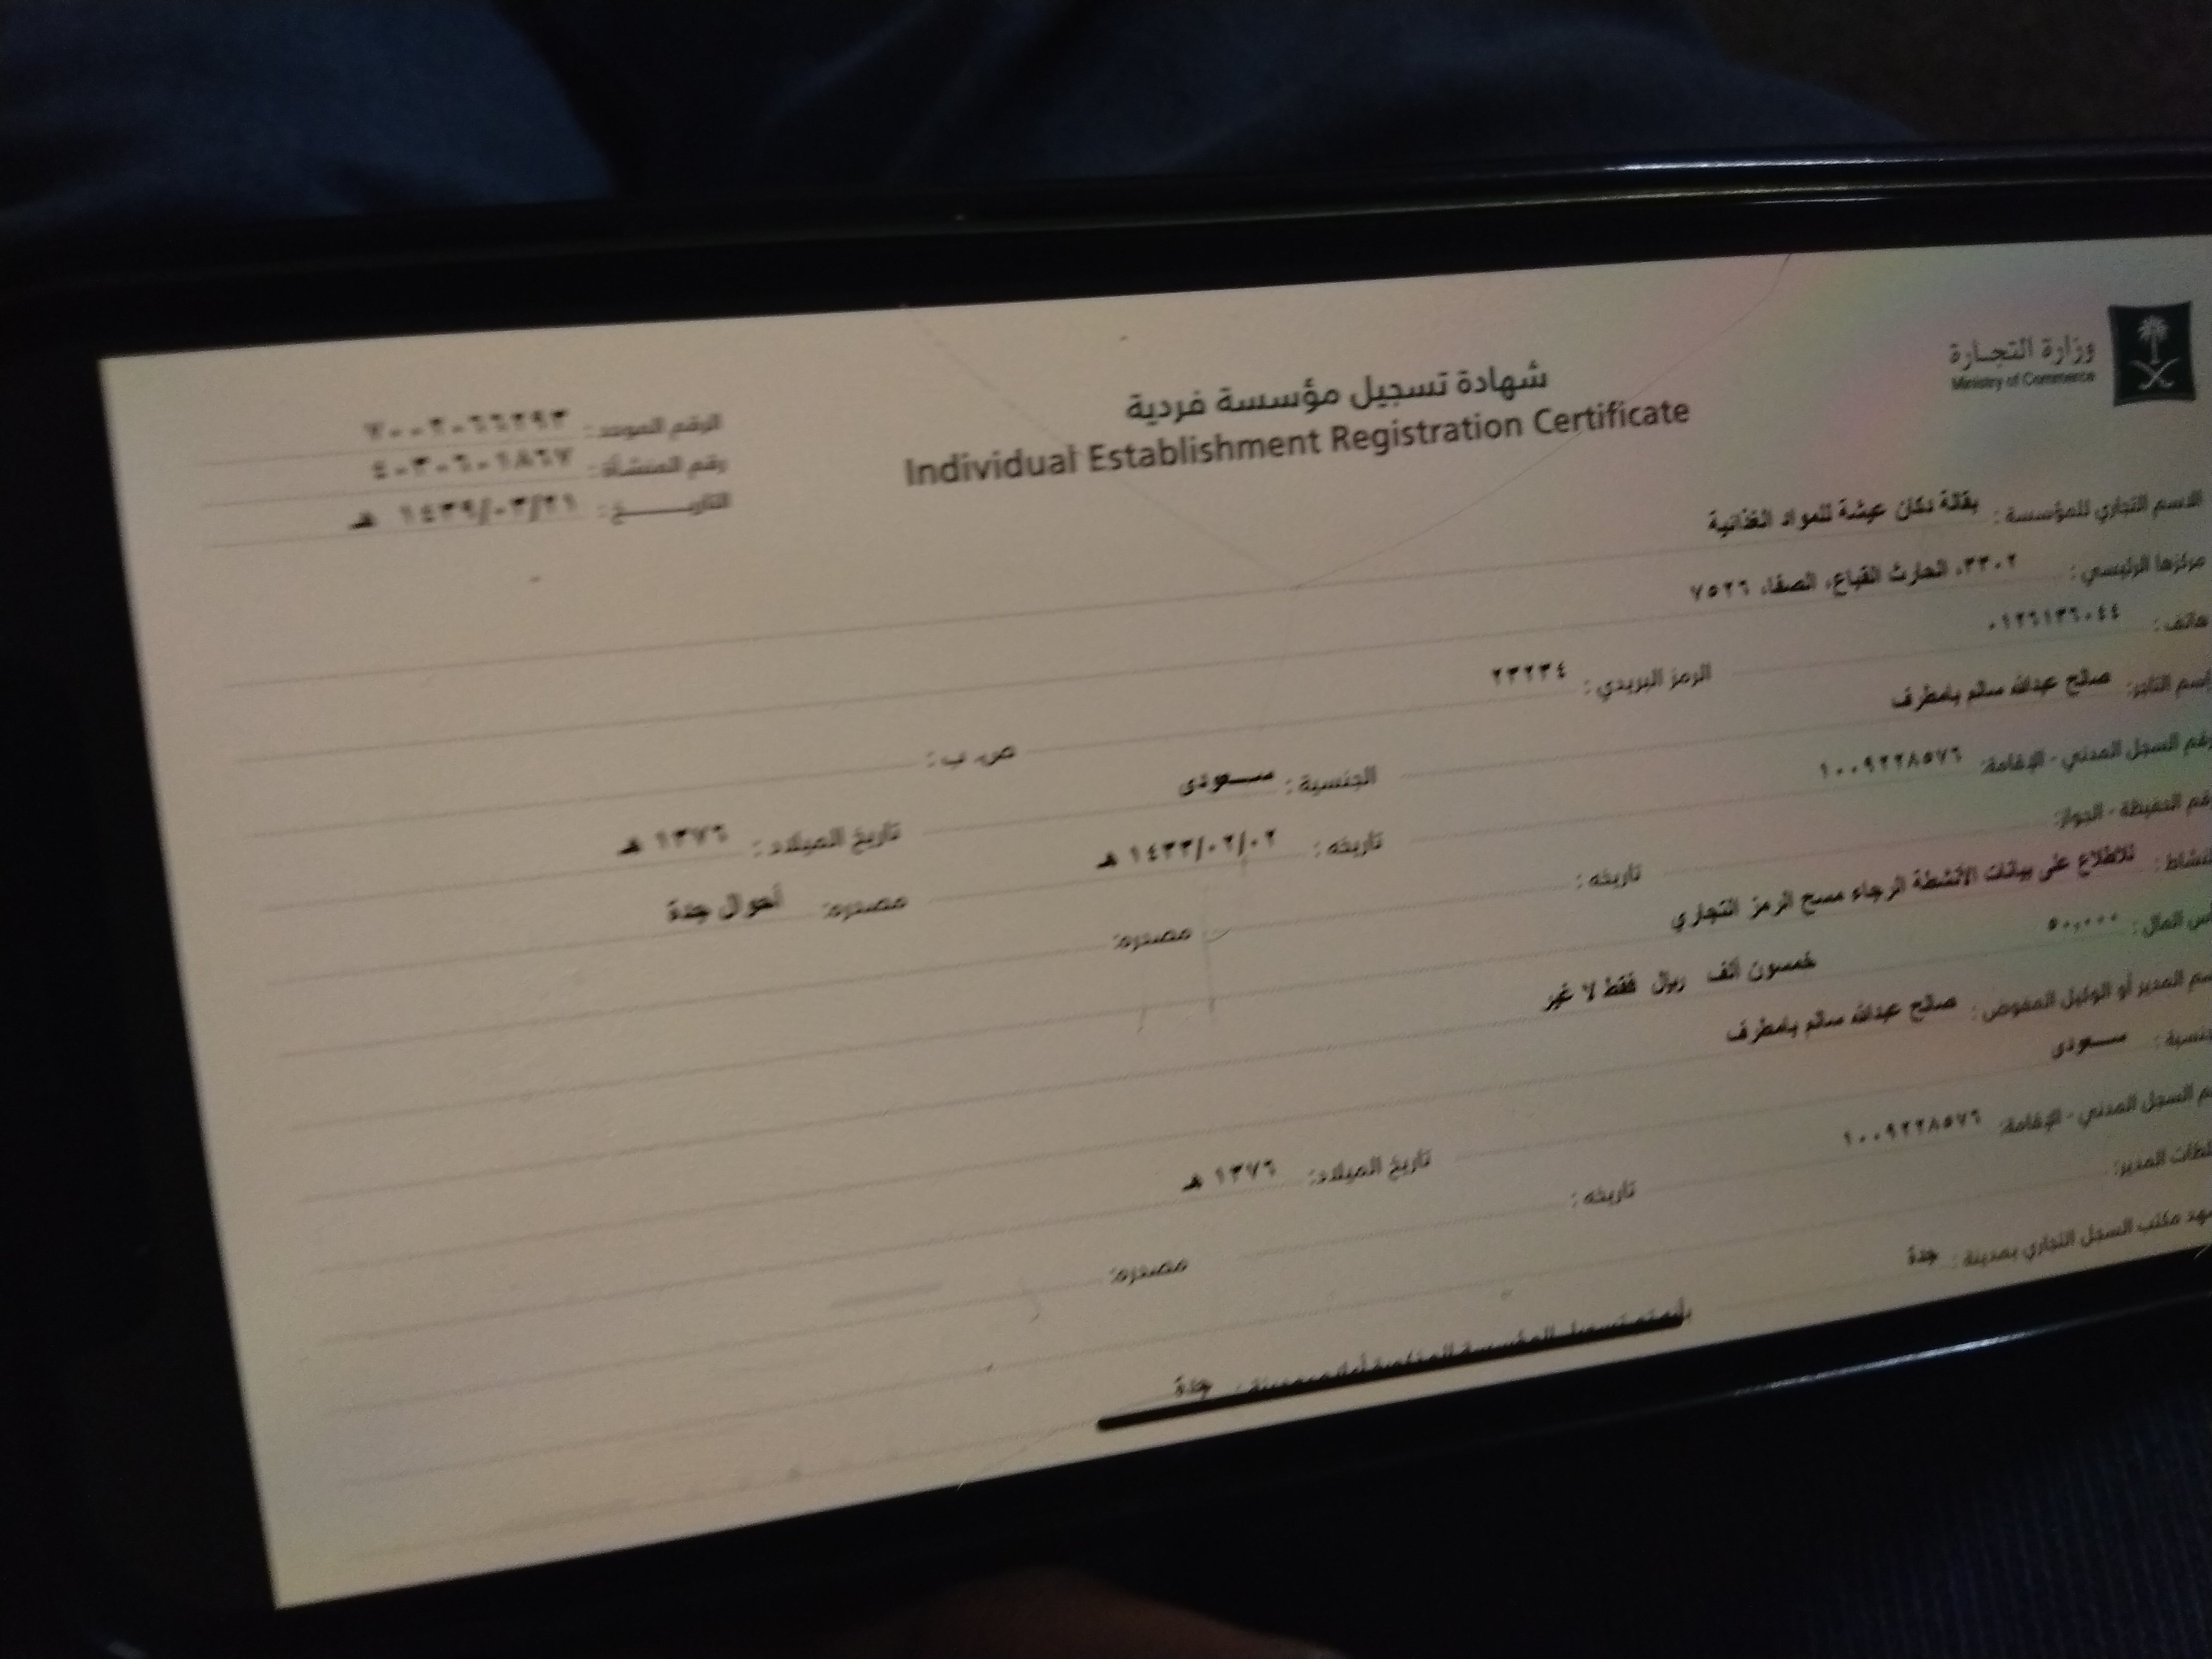 وزارة التجارة
Ministry of Commerce
شهادة تسجيل مؤسسة فردية
Individual Establishment Registration Certificate
الرقم الموحد: ٧٠٠٢٠٦٦٢٩٣
رقم المنشأة: ٤٠٣٠٦٠١٨٦٧
التاريــــــخ: ١٤٣٩/٠٣/٢١ هـ
الاسم التجاري للمؤسسة: بقالة دكان عيشة للمواد الغذائية
مركزها الرئيسي: ٣٣٠٢، الحارث القباع، الصفا، ٧٥٢٦
هاتف: ٠١٢٦١٣٦٠٤٤ الرمز البريدي: ٢٣٢٣٤ ص. ب:
اسم التاجر: صالح عبدالله سالم بامطرف الجنسية: سعودى تاريخ الميلاد: ١٣٧٦ هـ
رقم السجل المدني - الإقامة: ١٠٠٩٢٢٨٥٧٦ تاريخه: ١٤٣٣/٠٢/٠٢ هـ مصدره: أحوال جدة
رقم الحفيظة - الجواز: تاريخه: مصدره:
النشاط: للاطلاع على بيانات الأنشطة الرجاء مسح الرمز التجاري
رأس المال: ٥٠,٠٠٠ خمسون ألف ريال فقط لا غير
اسم المدير أو الوكيل المفوض: صالح عبدالله سالم بامطرف
الجنسية: سعودى تاريخ الميلاد: ١٣٧٦ هـ
رقم السجل المدني - الإقامة: ١٠٠٩٢٢٨٥٧٦ تاريخه: مصدره:
سلطات المدير:
يشهد مكتب السجل التجاري بمدينة: جدة
بأنه تم تسجيل المؤسسة المذكورة أعلاه بمدينة: جدة